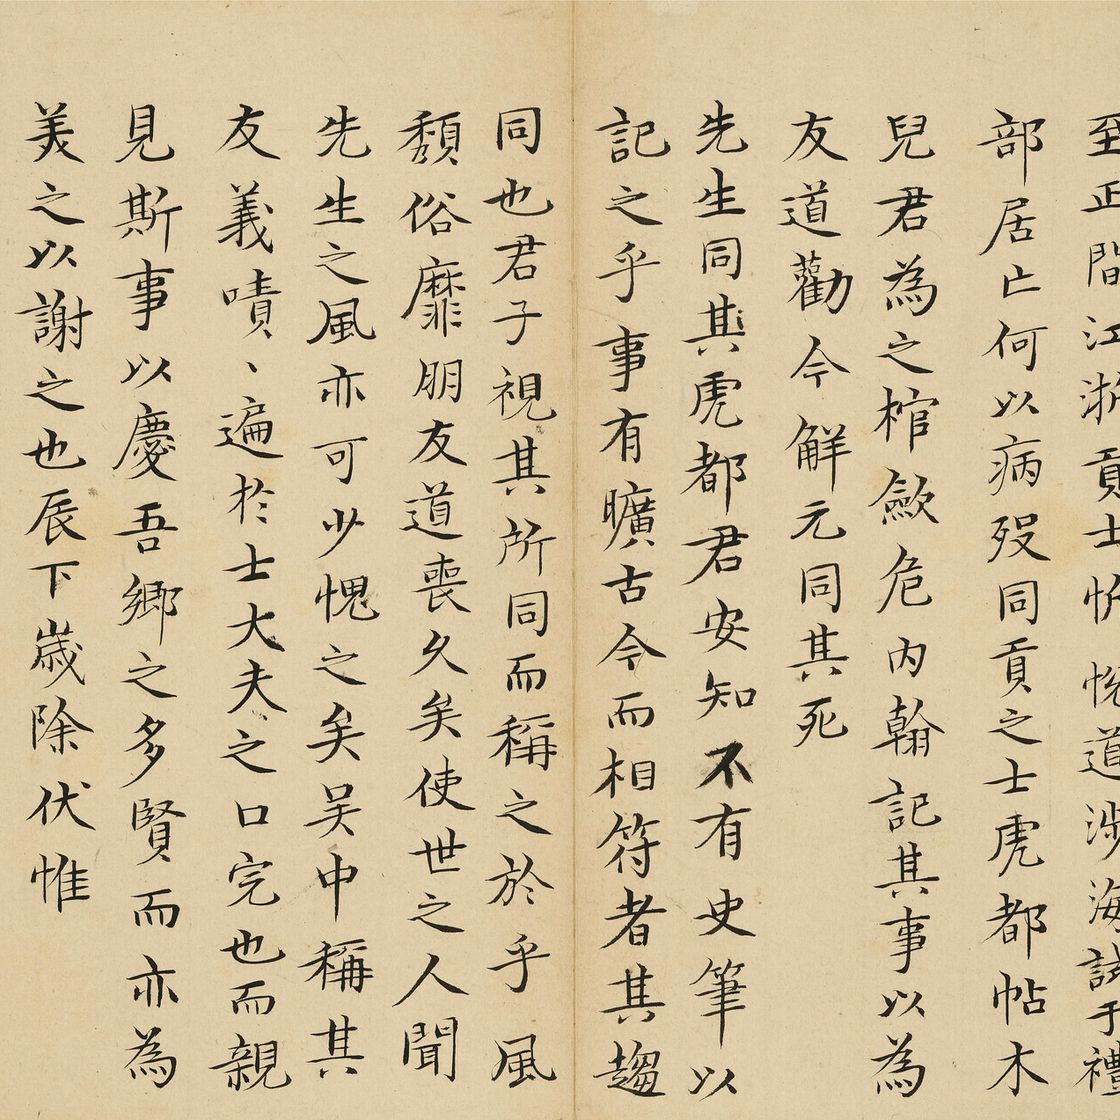 至正間江浙貢士忻忻悅道涉海試於禮
部居亡何以病歿同貢之士虎都帖木
兒君為之棺歛危內翰記其事以為
友道勸今解元同其死
先生同其虎都君安知不有史筆以
記之乎事有曠古今而相符者其趨
同也君子視其所同而稱之於乎風
頹俗靡朋友道喪久矣使世之人聞
先生之風亦可少愧之矣吴中稱其
友義嘖、遍於士大夫之口完也而親
見斯事以慶吾鄉之多賢而亦為
美之以謝之也辰下歲除伏惟